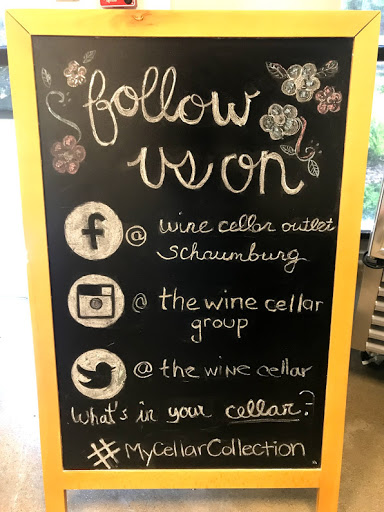 follow
us on
f @ wine cellar outlet
schaumburg
@ the wine cellar
group
@ the wine cellar
What's in your cellar?
#MyCellarCollection